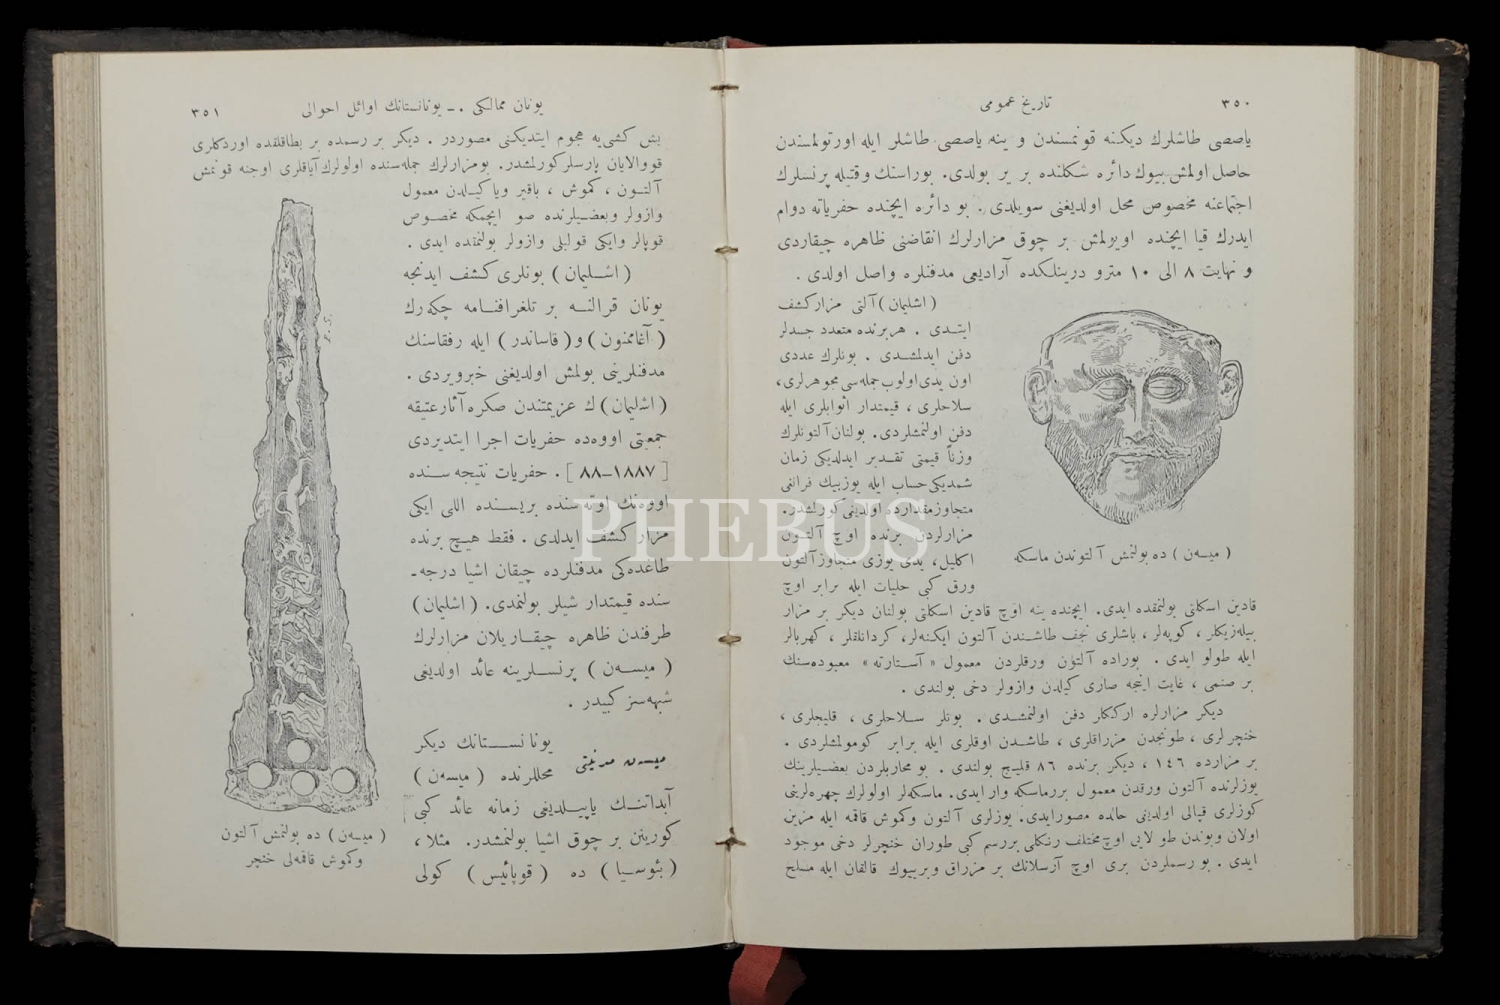 ٣٥٠
تاریخ عمومی
یاصصی طاشلرك دیكنه قونمسندن و ینه یاصصی طاشلر ایله اورتولمسندن
حاصل اولمش بیوك دائره شكلنده بر یر بولدی. بوراسنك وقتیله پرنسلرك
اجتماعنه مخصوص محل اولدیغنی سویلدی. بو دائره ایچنده حفریاته دوام
ایدرك قیا ایچنده اویولمش بر چوق مزارلرك انقاضنی ظاهره چیقاردی
و نهایت ٨ الی ١٠ مترو درینلكده آرادیغی مدفنلره واصل اولدی.
(اشلیمان) آلتی مزار كشف
ایتدی. هر برنده متعدد جسدلر
دفن ایدلمشدی. بونلرك عددی
اون یدی اولوب جمله‌سی مجوهرلری،
سلاحلری، قیمتدار اثوابلری ایله
دفن اولنمشلردی. بولنان آلتونلرك
وزناً قیمتی تقدیر ایدلدیكی زمان
شمدیكی حساب ایله یوزبیك فرانغی
متجاوز مقدارده اولدیغی كورلمشدر.
مزارلردن برنده اوچ آلتون
اكلیل، یدی یوزی متجاوز آلتون
ورق كبی حلیات ایله برابر اوچ
(میسه‌ن) ده بولنمش آلتوندن ماسكه
قادین اسكلتی بولنمقده ایدی. ایچنده ینه اوچ قادین اسكلتی بولنان دیكر بر مزار
بیله‌زیكلر، كوپه‌لر، باشلری نجف طاشندن آلتون ایكنه‌لر، كردانلقلر، كهربالر
ایله طولو ایدی. بوراده آلتون ورقلردن معمول «آستارته» معبوده‌سنك
بر صنمی، غایت اینجه صاری كیلدن وازولر دخی بولندی.
دیكر مزارلره ارككلر دفن اولنمشدی. بونلر سلاحلری، قلیجلری،
خنجرلری، طونجدن مزراقلری، طاشدن اوقلری ایله برابر كومولمشلردی.
بر مزارده ١٤٦، دیكر برنده ٨٦ قلیچ بولندی. بو محاربلردن بعضیلرینك
یوزلرنده آلتون ورقدن معمول بررماسكه وار ایدی. ماسكه‌لر اولولرك چهره‌لرینی
كوزلری قپالی اولدیغی حالده مصور ایدی. یوزلری آلتون وكموش قاقمه ایله مزین
اولان وبوندن طولایی اوچ مختلف رنكلی بررسم كبی طوران خنجرلر دخی موجود
ایدی. بو رسملردن بری اوچ آرسلانك بر مزراق وبر بیوك قالقان ایله مسلح
٣٥١
یونان ممالكی. ـ یونانستانك اوائل احوالی
بش كشی‌یه هجوم ایتدیكنی مصوردر. دیكر بر رسمده بر بطاقلقده اوردكلری
قووالایان پارسلر كورلمشدر. بو مزارلرك جمله‌سنده اولولرك آیاقلری اوجنه قونمش
آلتون، كموش، باقیر ویا كیلدن معمول
وازولر وبعضیلرنده صو ایچمكه مخصوص
قوپالر وایكی قولپلی وازولر بولنمقده ایدی.
(اشلیمان) بونلری كشف ایدنجه
یونان قرالنه بر تلغرافنامه چكه‌رك
(آغاممنون) و (قاساندر) ایله رفقاسنك
مدفنلرینی بولمش اولدیغنی خبرویردی.
(اشلیمان) ك عزیمتندن صكره آثار عتیقه
جمعیتی اووه‌ده حفریات اجرا ایتدیردی
[١٨٨٧–٨٨]. حفریات نتیجه‌سنده
اووه‌نك اوته‌سنده بریسنده اللی ایكی
مزار كشف ایدلدی. فقط هیچ برنده
طاغده‌كی مدفنلرده چیقان اشیا درجه‌ـ
سنده قیمتدار شیلر بولنمدی. (اشلیمان)
طرفندن ظاهره چیقاریلان مزارلرك
(میسه‌ن) پرنسلرینه عائد اولدیغی
شبهه‌سز كبیدر.
میسه‌ن مدنیتی
یونانستانك دیكر
محللرنده (میسه‌ن)
آبداتنك یاپیلدیغی زمانه عائد كبی
كورینن بر چوق اشیا بولنمشدر. مثلا،
(بئوسیا) ده (قوپائیس) كولی
(میسه‌ن) ده بولنمش آلتون
وكموش قاقمه‌لی خنجر
PHEBUS